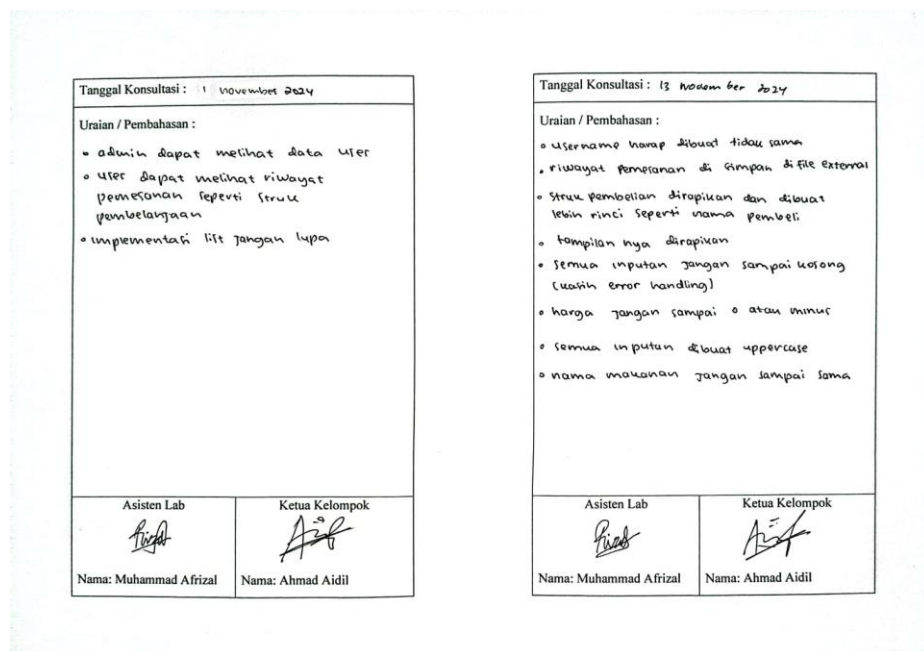 Tanggal Konsultasi : 11 November 2024
Uraian / Pembahasan :
• admin dapat melihat data user
• user dapat melihat riwayat
pemesanan seperti struk
pembelanjaan
• implementasi list jangan lupa
Asisten Lab
Ketua Kelompok
Nama: Muhammad Afrizal
Nama: Ahmad Aidil
Tanggal Konsultasi : 13 November 2024
Uraian / Pembahasan :
• username harap dibuat tidak sama
• riwayat pemesanan di simpan di file external
• struk pembelian dirapikan dan dibuat
lebih rinci seperti nama pembeli
• tampilan nya dirapikan
• semua inputan jangan sampai kosong
(kasih error handling)
• harga jangan sampai 0 atau minus
• semua inputan dibuat uppercase
• nama makanan jangan sampai sama
Asisten Lab
Ketua Kelompok
Nama: Muhammad Afrizal
Nama: Ahmad Aidil